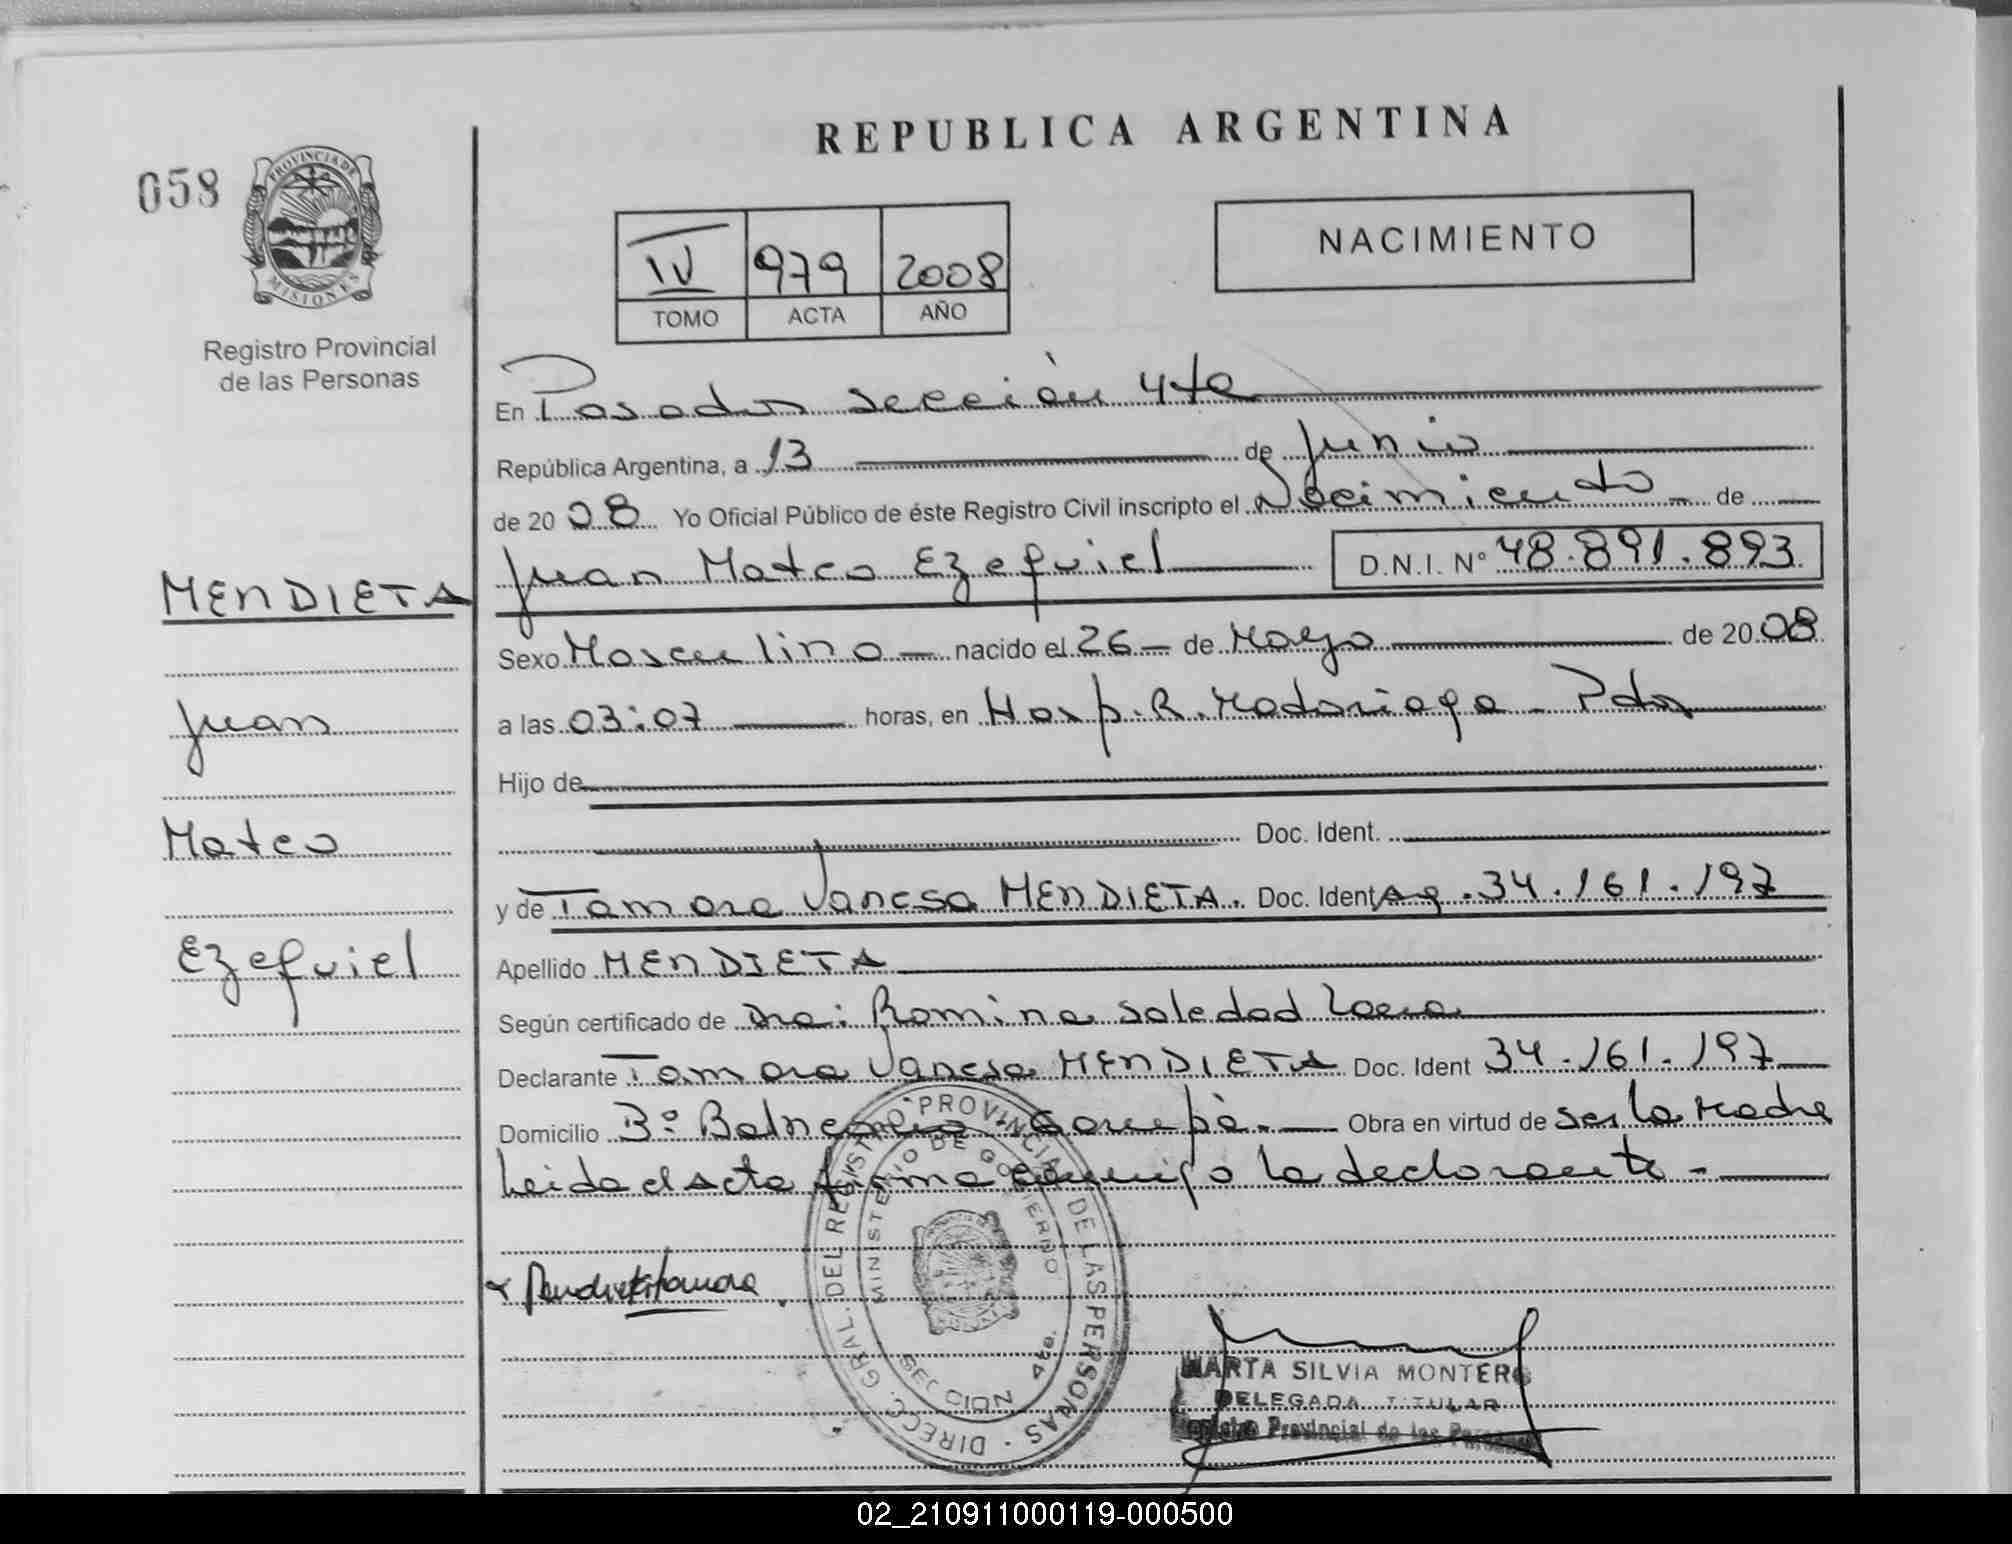 REPUBLICA ARGENTINA
058
PROVINCIA DE
MISIONES
Registro Provincial
de las Personas
IV 979 2008
TOMO ACTA AÑO
NACIMIENTO
En Posadas sección 4ta
República Argentina, a 13 de Junio
de 2008 Yo Oficial Público de éste Registro Civil inscripto el Nacimiento de
Juan Mateo Ezequiel D.N.I. N° 48.891.893
Sexo Masculino nacido el 26 de Mayo de 2008
a las 03:07 horas, en Hosp. R. Madariaga - Pdas
Hijo de
Doc. Ident.
y de Tamara Vanesa MENDIETA. Doc. Ident Arg. 34.161.197
Apellido MENDIETA
Según certificado de Dra: Romina Soledad
Declarante Tamara Vanesa MENDIETA Doc. Ident 34.161.197
Domicilio B° Balneario Garupá. Obra en virtud de ser la madre
Leida el Acta firma conmigo la declarante
MENDIETA
Juan
Mateo
Ezequiel
Mendieta Tamara
DIRECC. GRAL. DEL REGISTRO PROVINCIAL DE LAS PERSONAS
MINISTERIO DE GOBIERNO
SECCION 4ta.
MARTA SILVIA MONTERO
DELEGADA TITULAR
Registro Provincial de las Personas
02_210911000119-000500